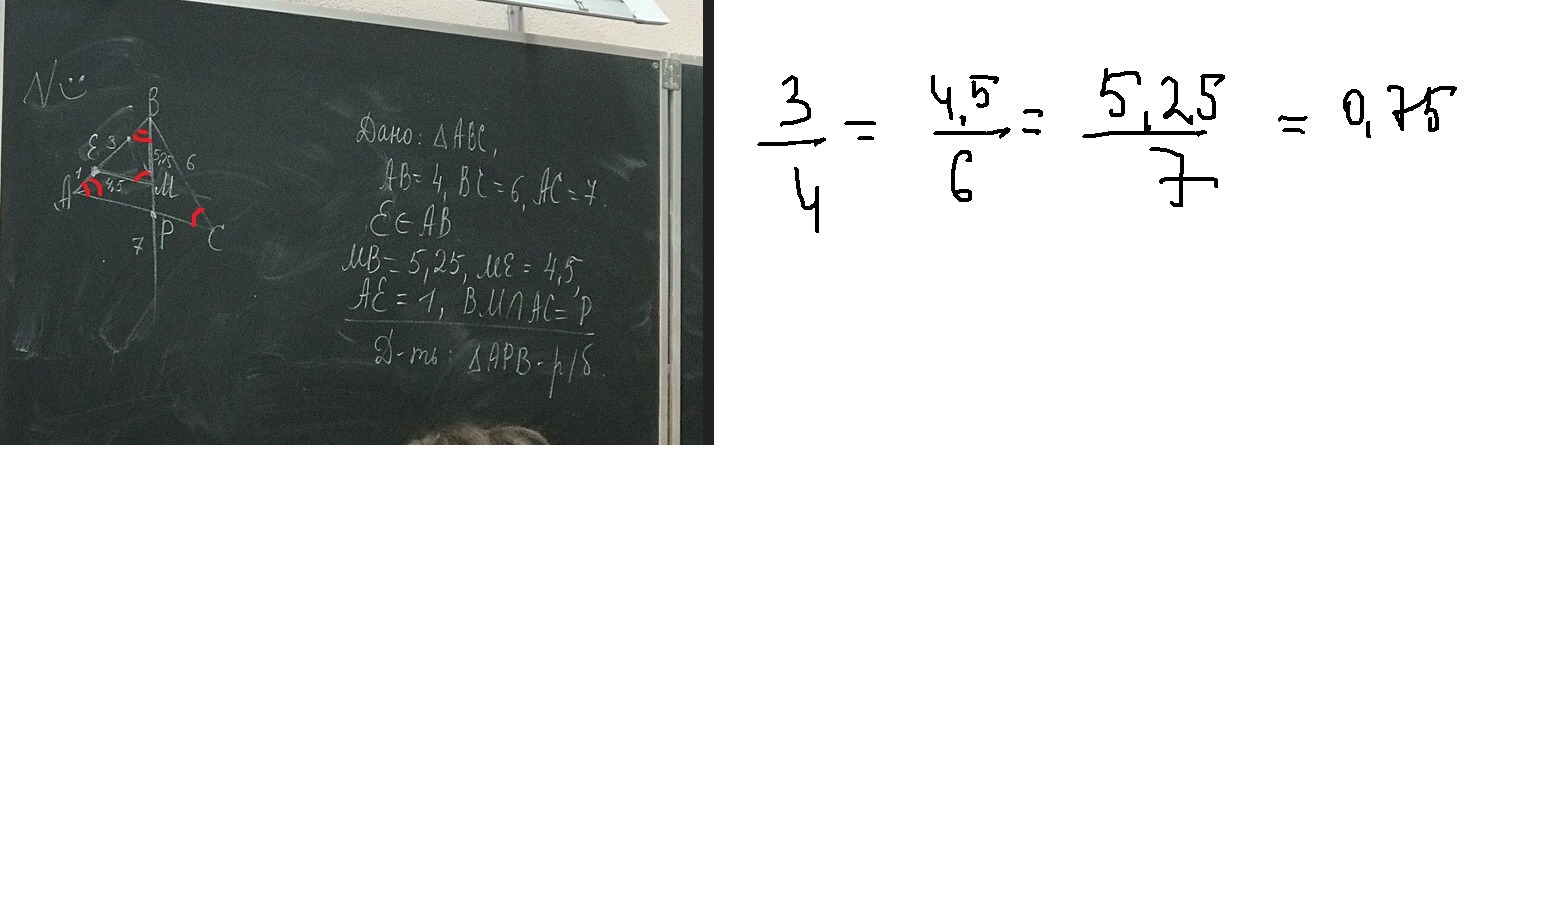 N
B
E 3 5,25 6
1 4,5 M
A
P C
7
Дано: △ABC,
AB=4, BC=6, AC=7.
E∈AB
MB=5,25, ME=4,5,
AE=1, BM∩AC=P
Д-ть: △APB-р/б.
3/4 = 4,5/6 = 5,25/7 = 0,75